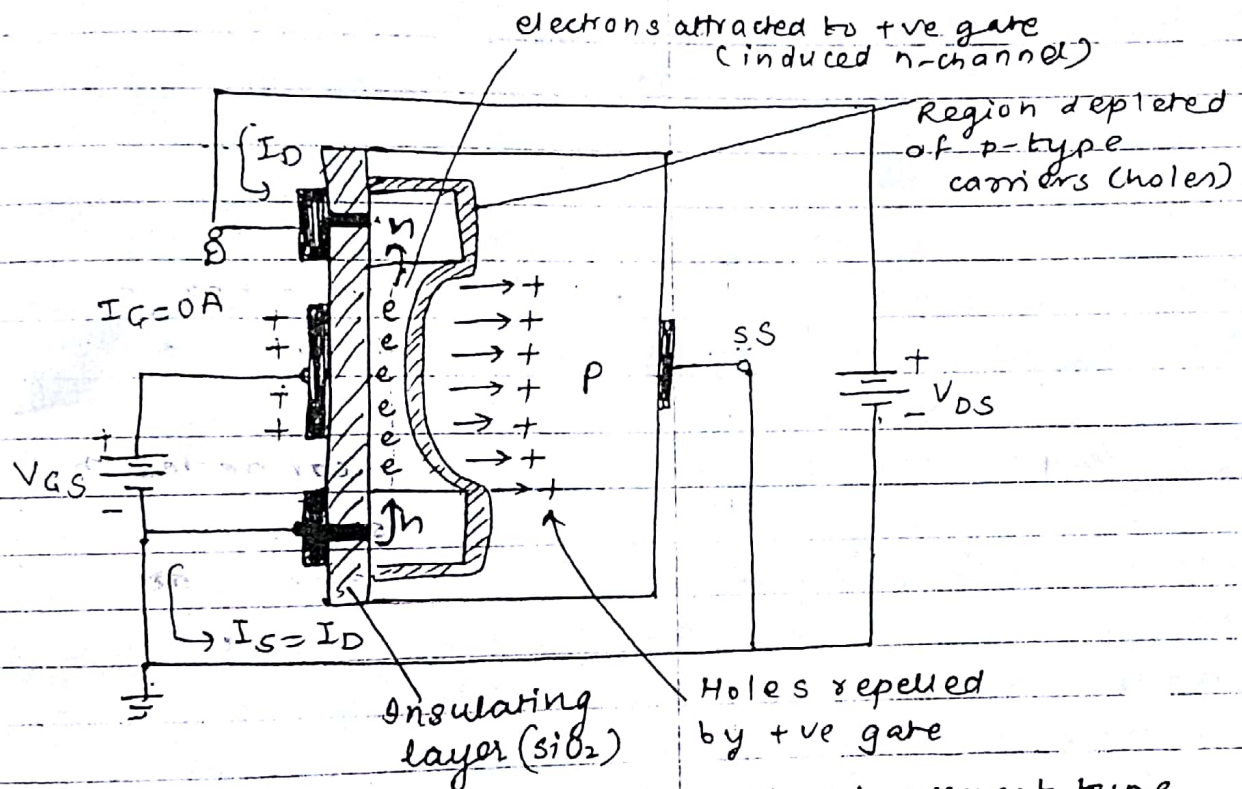 electrons attracted to +ve gate
(induced n-channel)
Region depleted
of p-type
carriers (holes)
ID
n
IG=0A
+
+
+
+
e
e
e
e
e
e
→ +
→ +
→ +
→ +
→ +
→ +
→ +
P
SS
+
- VDS
+
VGS
-
n
IS=ID
Insulating
layer (SiO2)
Holes repelled
by +ve gate
type